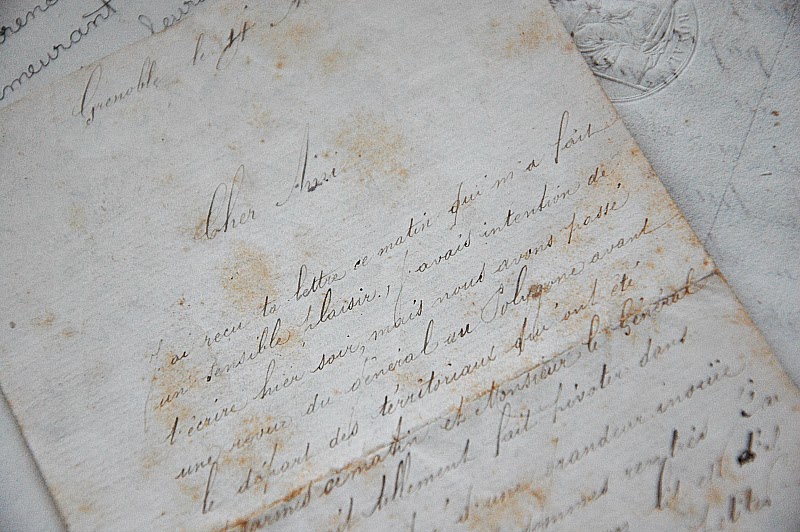 meurant leur
Grenoble le 11 M
Cher Ami
J'ai reçu ta lettre ce matin qui m'a fait
un sensible plaisir, j'avais intention de
t'écrire hier soir, mais nous avons passé
une revue du Général au Polygone avant
le départ des térritoriaux qui ont été
ce matin et Monsieur le Général
tellement fait pivoter dans
d'une grandeur inouïe
sommes rentrés